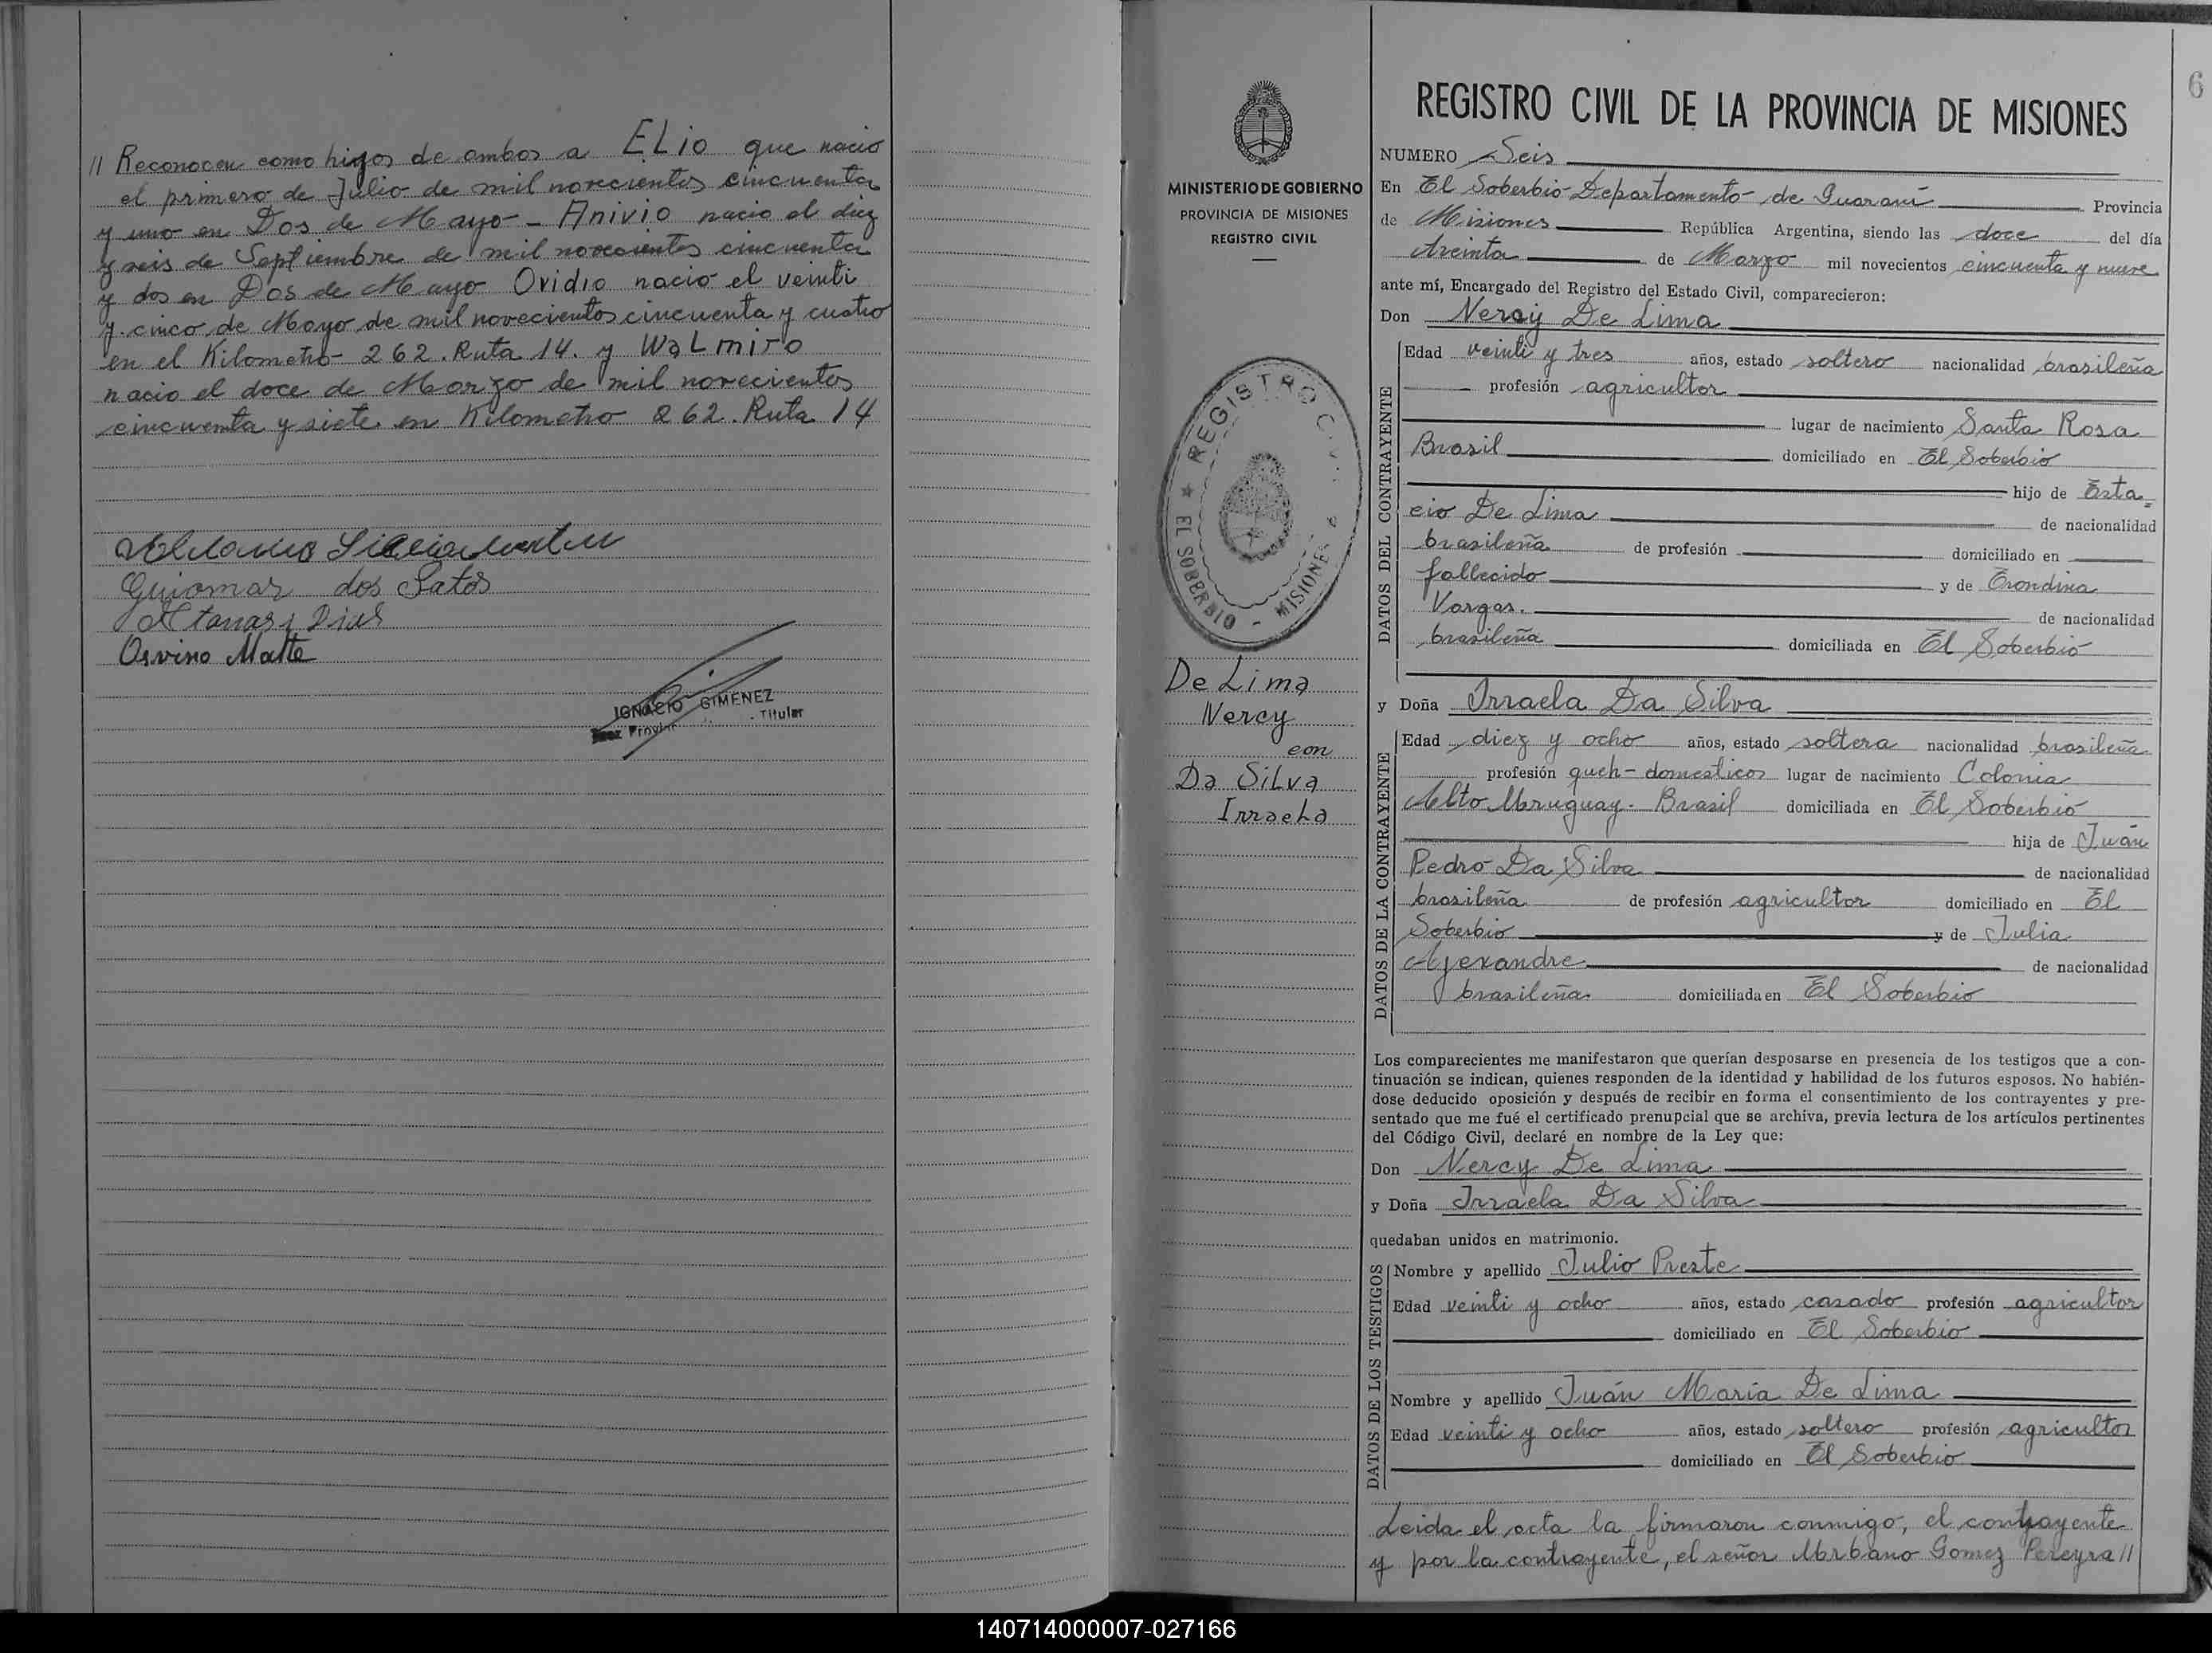 // Reconocen como higos de ambos a ELio que nacio
el primero de Julio de mil novecientos cincuenta
y uno en Dos de Mayo - Anivio nacio el diez
y seis de Septiembre de mil novecientos cincuenta
y dos en Dos de Mayo Ovidio nacio el veinti
y cinco de Mayo de mil novecientos cincuenta y cuatro
en el Kilometro - 262. Ruta 14. y WaLmiro
nacio el doce de Marzo de mil novecientos
cincuenta y siete en Kilometro 262. Ruta 14
Guiomar dos Satos
Dias
Osvino Matte
IGNACIO GIMENEZ
Titular
MINISTERIO DE GOBIERNO
PROVINCIA DE MISIONES
REGISTRO CIVIL
REGISTRO CIVIL
EL SOBERBIO - MISIONES
De Lima
Nercy
con
Da SiLva
IrraeLa
6
REGISTRO CIVIL DE LA PROVINCIA DE MISIONES
NUMERO Seis
En El Soberbio Departamento de Guarani Provincia
de Misiones República Argentina, siendo las doce del día
treinta de Marzo mil novecientos cincuenta y nueve
ante mí, Encargado del Registro del Estado Civil, comparecieron:
Don Nercy De Lima
DATOS DEL CONTRAYENTE
Edad veinti y tres años, estado soltero nacionalidad brasileña
profesión agricultor
lugar de nacimiento Santa Rosa
Brasil domiciliado en El Soberbio
hijo de Esta=
cio De Lima de nacionalidad
brasileña de profesión domiciliado en
fallecido y de Erondina
Vargas. de nacionalidad
brasileña domiciliada en El Soberbio
y Doña Irraela Da Silva
DATOS DE LA CONTRAYENTE
Edad diez y ocho años, estado soltera nacionalidad brasileña
profesión queh-domesticos lugar de nacimiento Colonia
Alto Uruguay. Brasil domiciliada en El Soberbio
hija de Juán
Pedro Da Silva de nacionalidad
brasileña de profesión agricultor domiciliado en El
Soberbio y de Julia
de nacionalidad
brasileña domiciliada en El Soberbio
Los comparecientes me manifestaron que querían desposarse en presencia de los testigos que a con-
tinuación se indican, quienes responden de la identidad y habilidad de los futuros esposos. No habién-
dose deducido oposición y después de recibir en forma el consentimiento de los contrayentes y pre-
sentado que me fué el certificado prenupcial que se archiva, previa lectura de los artículos pertinentes
del Código Civil, declaré en nombre de la Ley que:
Don Nercy De Lima
y Doña Irraela Da Silva
quedaban unidos en matrimonio.
DATOS DE LOS TESTIGOS
Nombre y apellido Julio Preste
Edad veinti y ocho años, estado casado profesión agricultor
domiciliado en El Soberbio
Nombre y apellido Juán María De Lima
Edad veinti y ocho años, estado soltero profesión agricultor
domiciliado en El Soberbio
Leida el acta la firmaron conmigo, el contrayente
y por la contrayente, el señor Urbano Gomez Pereyra //
140714000007-027166